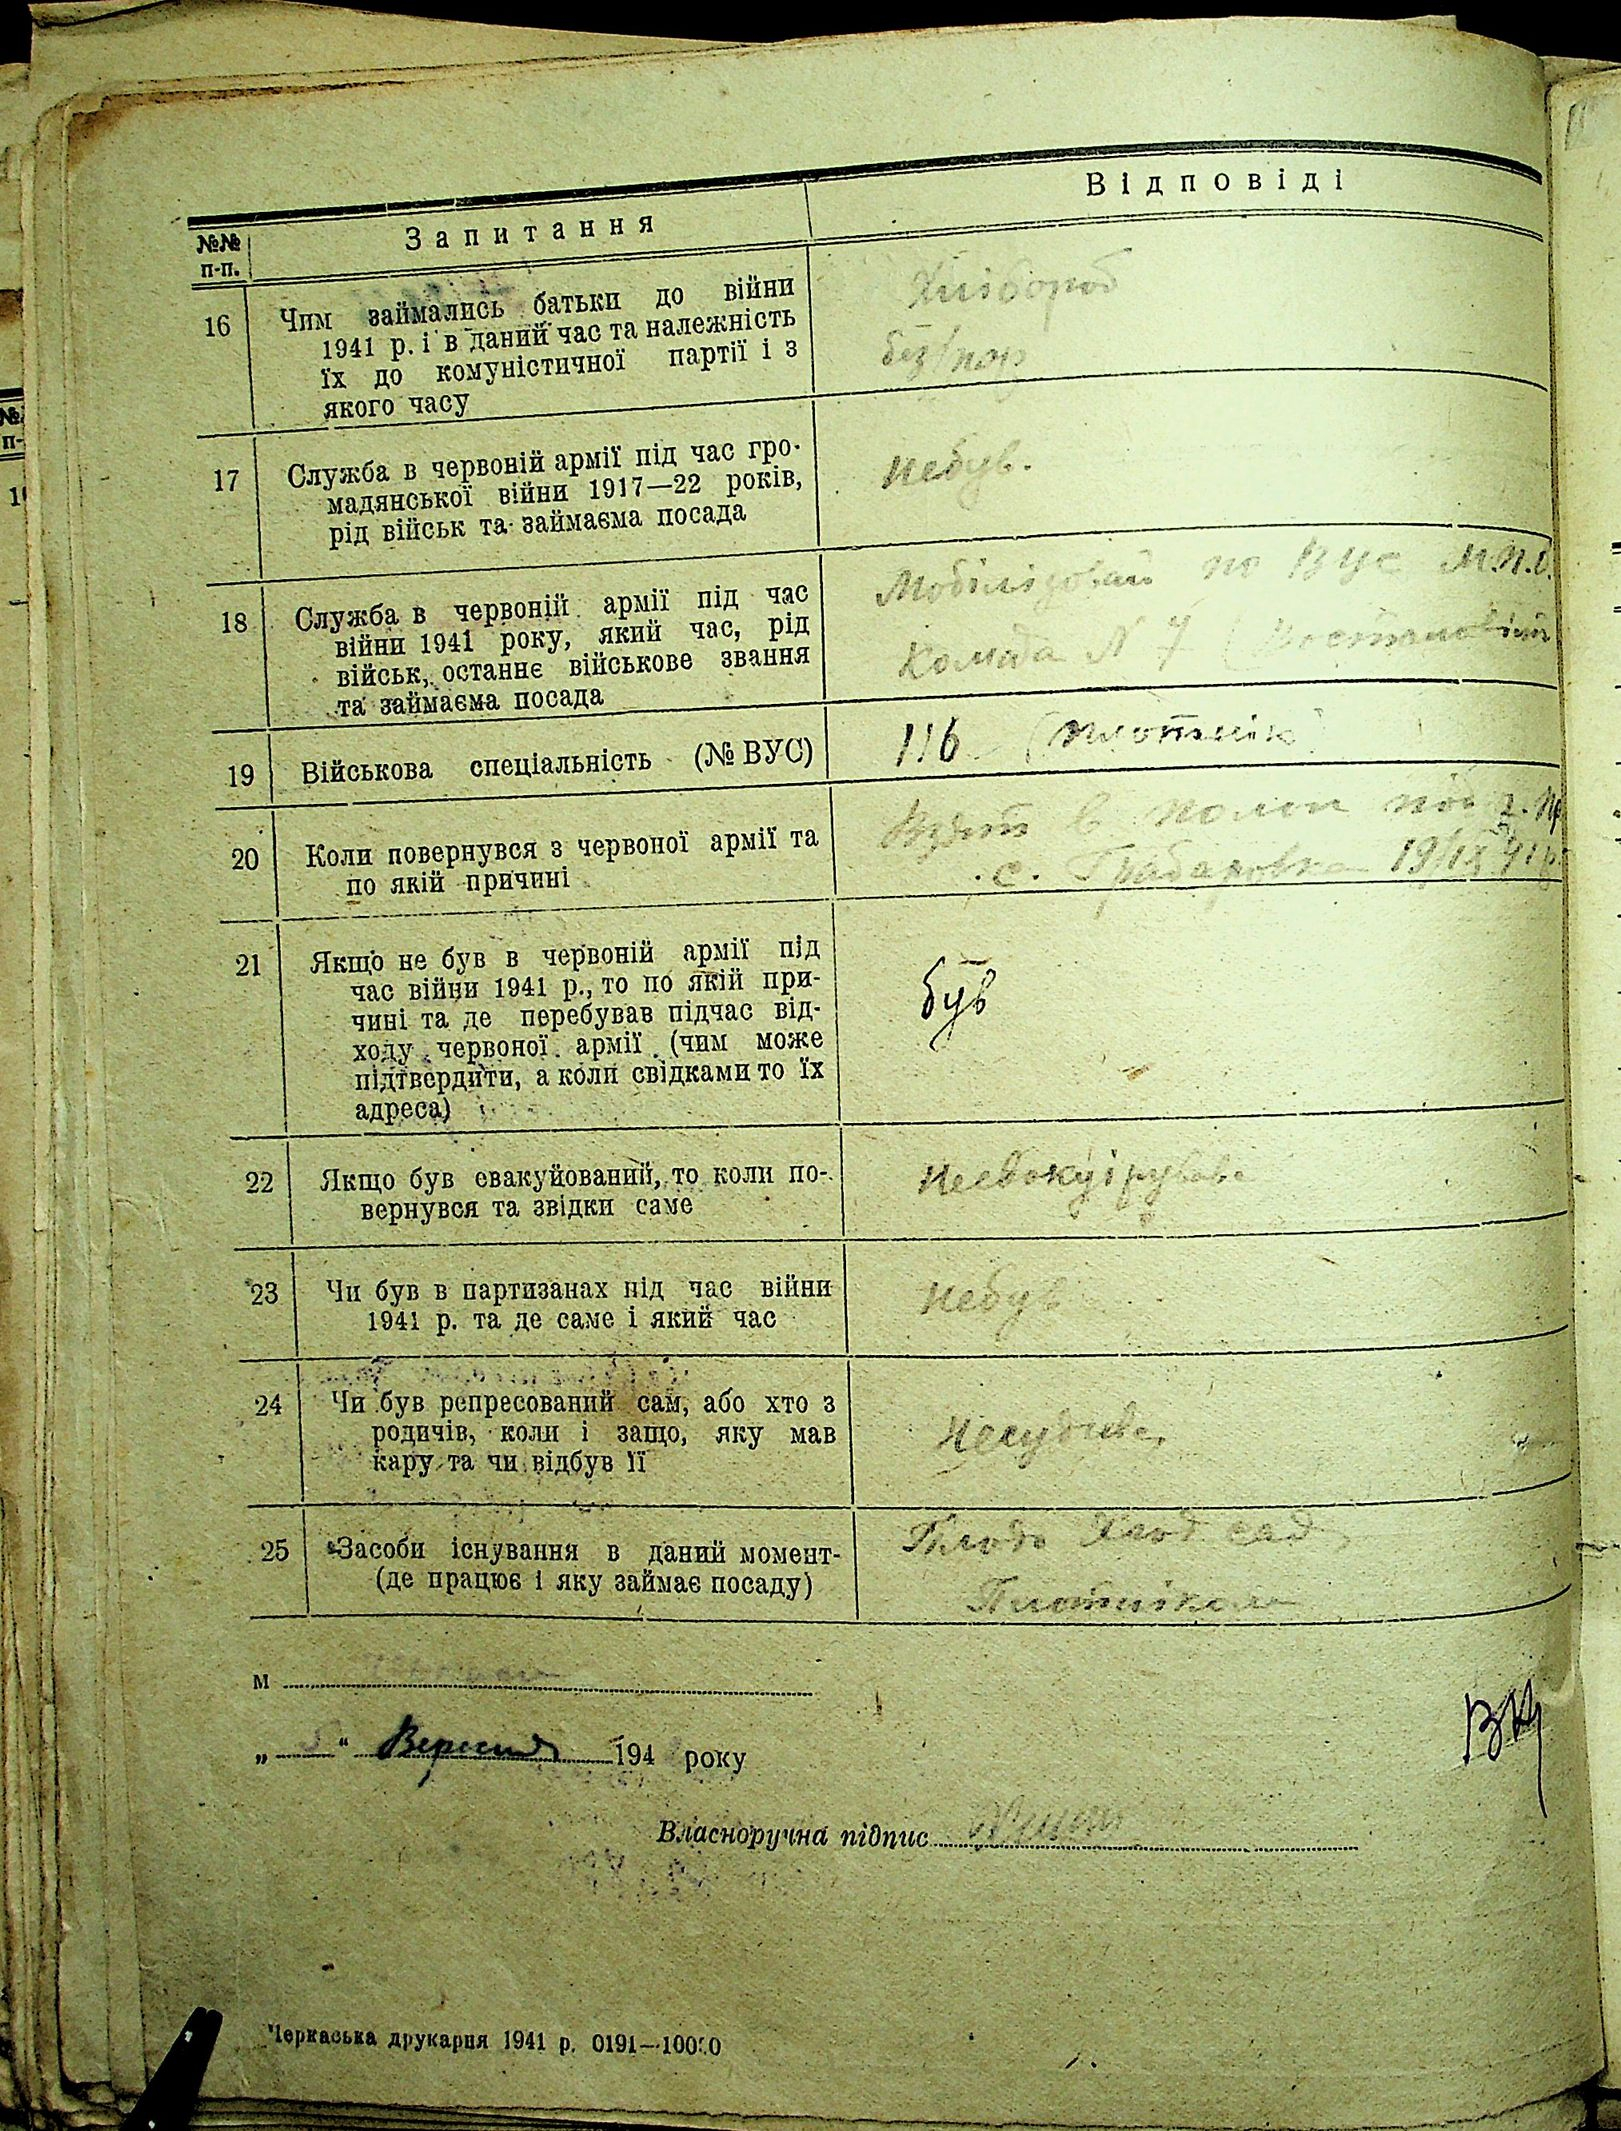 №№ п-п.
Запитання
Відповіді
16
Чим займались батьки до війни
1941 р. і в даний час та належність
їх до комуністичної партії і з
якого часу
Хлібороб
без/пар
17
Служба в червоній армії під час гро-
мадянської війни 1917—22 років,
рід військ та займаєма посада
Небув.
18
Служба в червоній армії під час
війни 1941 року, який час, рід
військ, останнє військове звання
та займаєма посада
Мобілізован по Вус М.П.
Команда №
19
Військова спеціальність (№ ВУС)
116 (Плотнік)
20
Коли повернувся з червоної армії та
по якій причині
Взят в полон під
с. Грабаровка 19/IX 41 р
21
Якщо не був в червоній армії під
час війни 1941 р., то по якій при-
чині та де перебував підчас від-
ходу червоної армії (чим може
підтвердити, а коли свідками то їх
адреса)
був
22
Якщо був евакуйований, то коли по-
вернувся та звідки саме
Неевокуірував.
23
Чи був в партизанах під час війни
1941 р. та де саме і який час
Небув
24
Чи був репресований сам, або хто з
родичів, коли і защо, яку мав
кару та чи відбув її
25
Засоби існування в даний момент-
(де працює і яку займає посаду)
сад
Плотніком
м
„ “ Вересня 194 року
Власноручна підпис
Черкаська друкарня 1941 р. 0191—10000